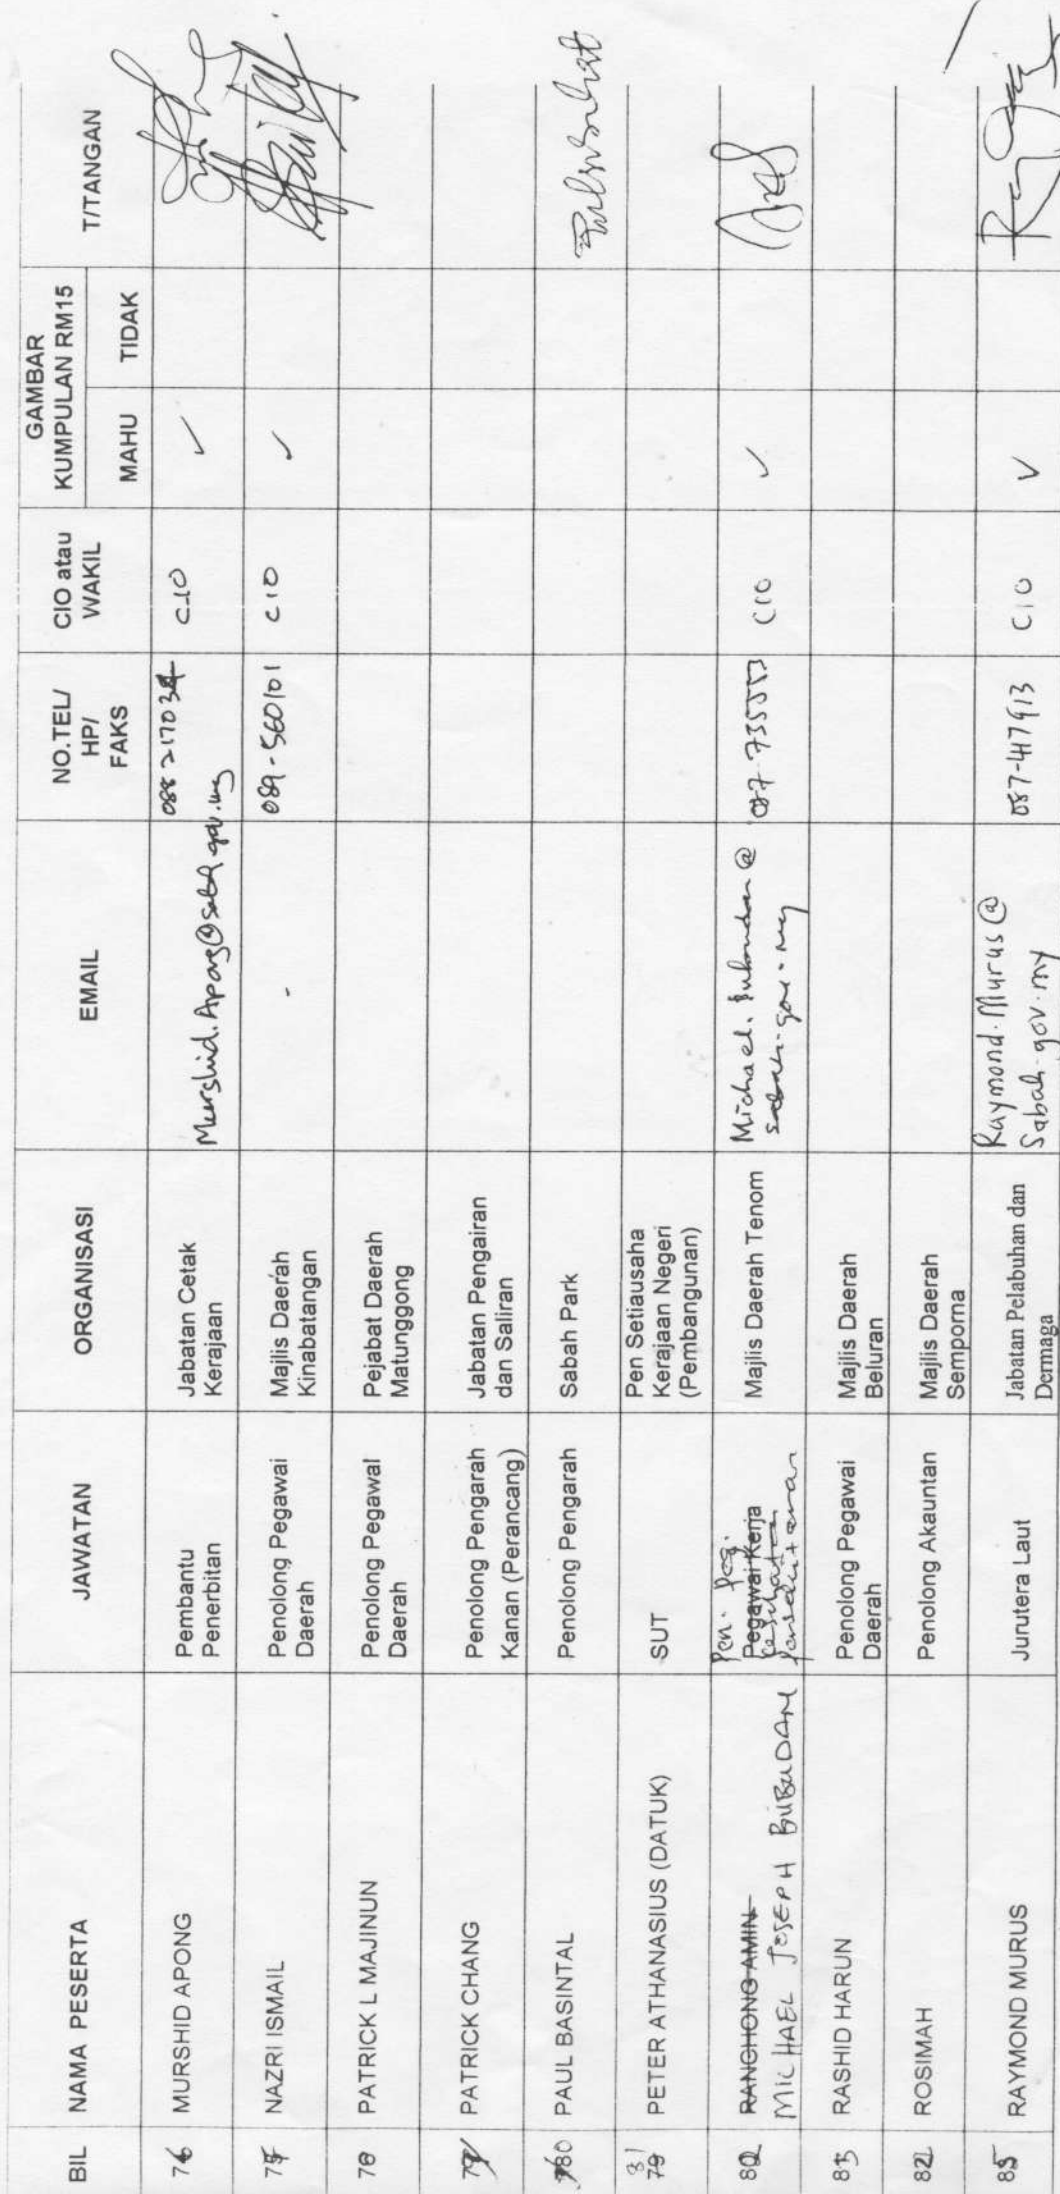 BIL NAMA PESERTA JAWATAN ORGANISASI EMAIL NO.TEL/ HP/ FAKS CIO atau WAKIL GAMBAR KUMPULAN RM15 MAHU TIDAK T/TANGAN
76 MURSHID APONG Pembantu Penerbitan Jabatan Cetak Kerajaan Murshid.Apong@sabah.gov.my CIO ✓
NAZRI ISMAIL Penolong Pegawai Daerah Majlis Daerah Kinabatangan - 089-560101 CIO ✓
PATRICK L MAJINUN Penolong Pegawai Daerah Pejabat Daerah Matunggong
PATRICK CHANG Penolong Pengarah Kanan (Perancang) Jabatan Pengairan dan Saliran
80 PAUL BASINTAL Penolong Pengarah Sabah Park
81 79 PETER ATHANASIUS (DATUK) SUT Pen Setiausaha Kerajaan Negeri (Pembangunan)
82 RANGHONG AMIN Pegawai Kerja Majlis Daerah Tenom 087-735553 CIO ✓
MICHAEL JOSEPH BUBUDAN Pen. Peg. Kesihatan Persekitaran
83 RASHID HARUN Penolong Pegawai Daerah Majlis Daerah Beluran
ROSIMAH Penolong Akauntan Majlis Daerah Semporna
85 RAYMOND MURUS Jurutera Laut Jabatan Pelabuhan dan Dermaga Raymond.Murus@ Sabah.gov.my CIO V